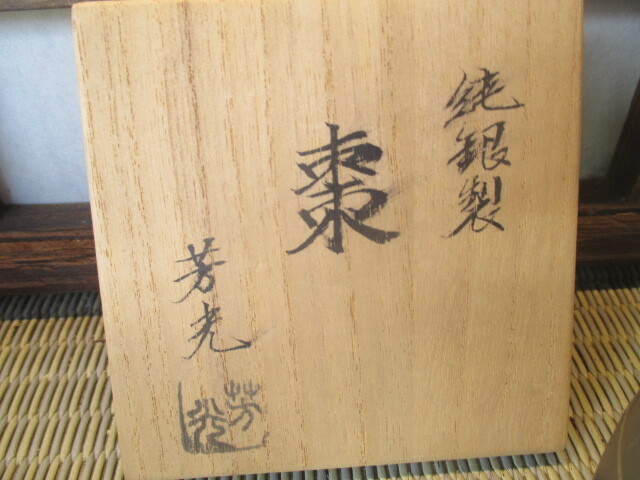 純銀製
棗
芳光
芳光